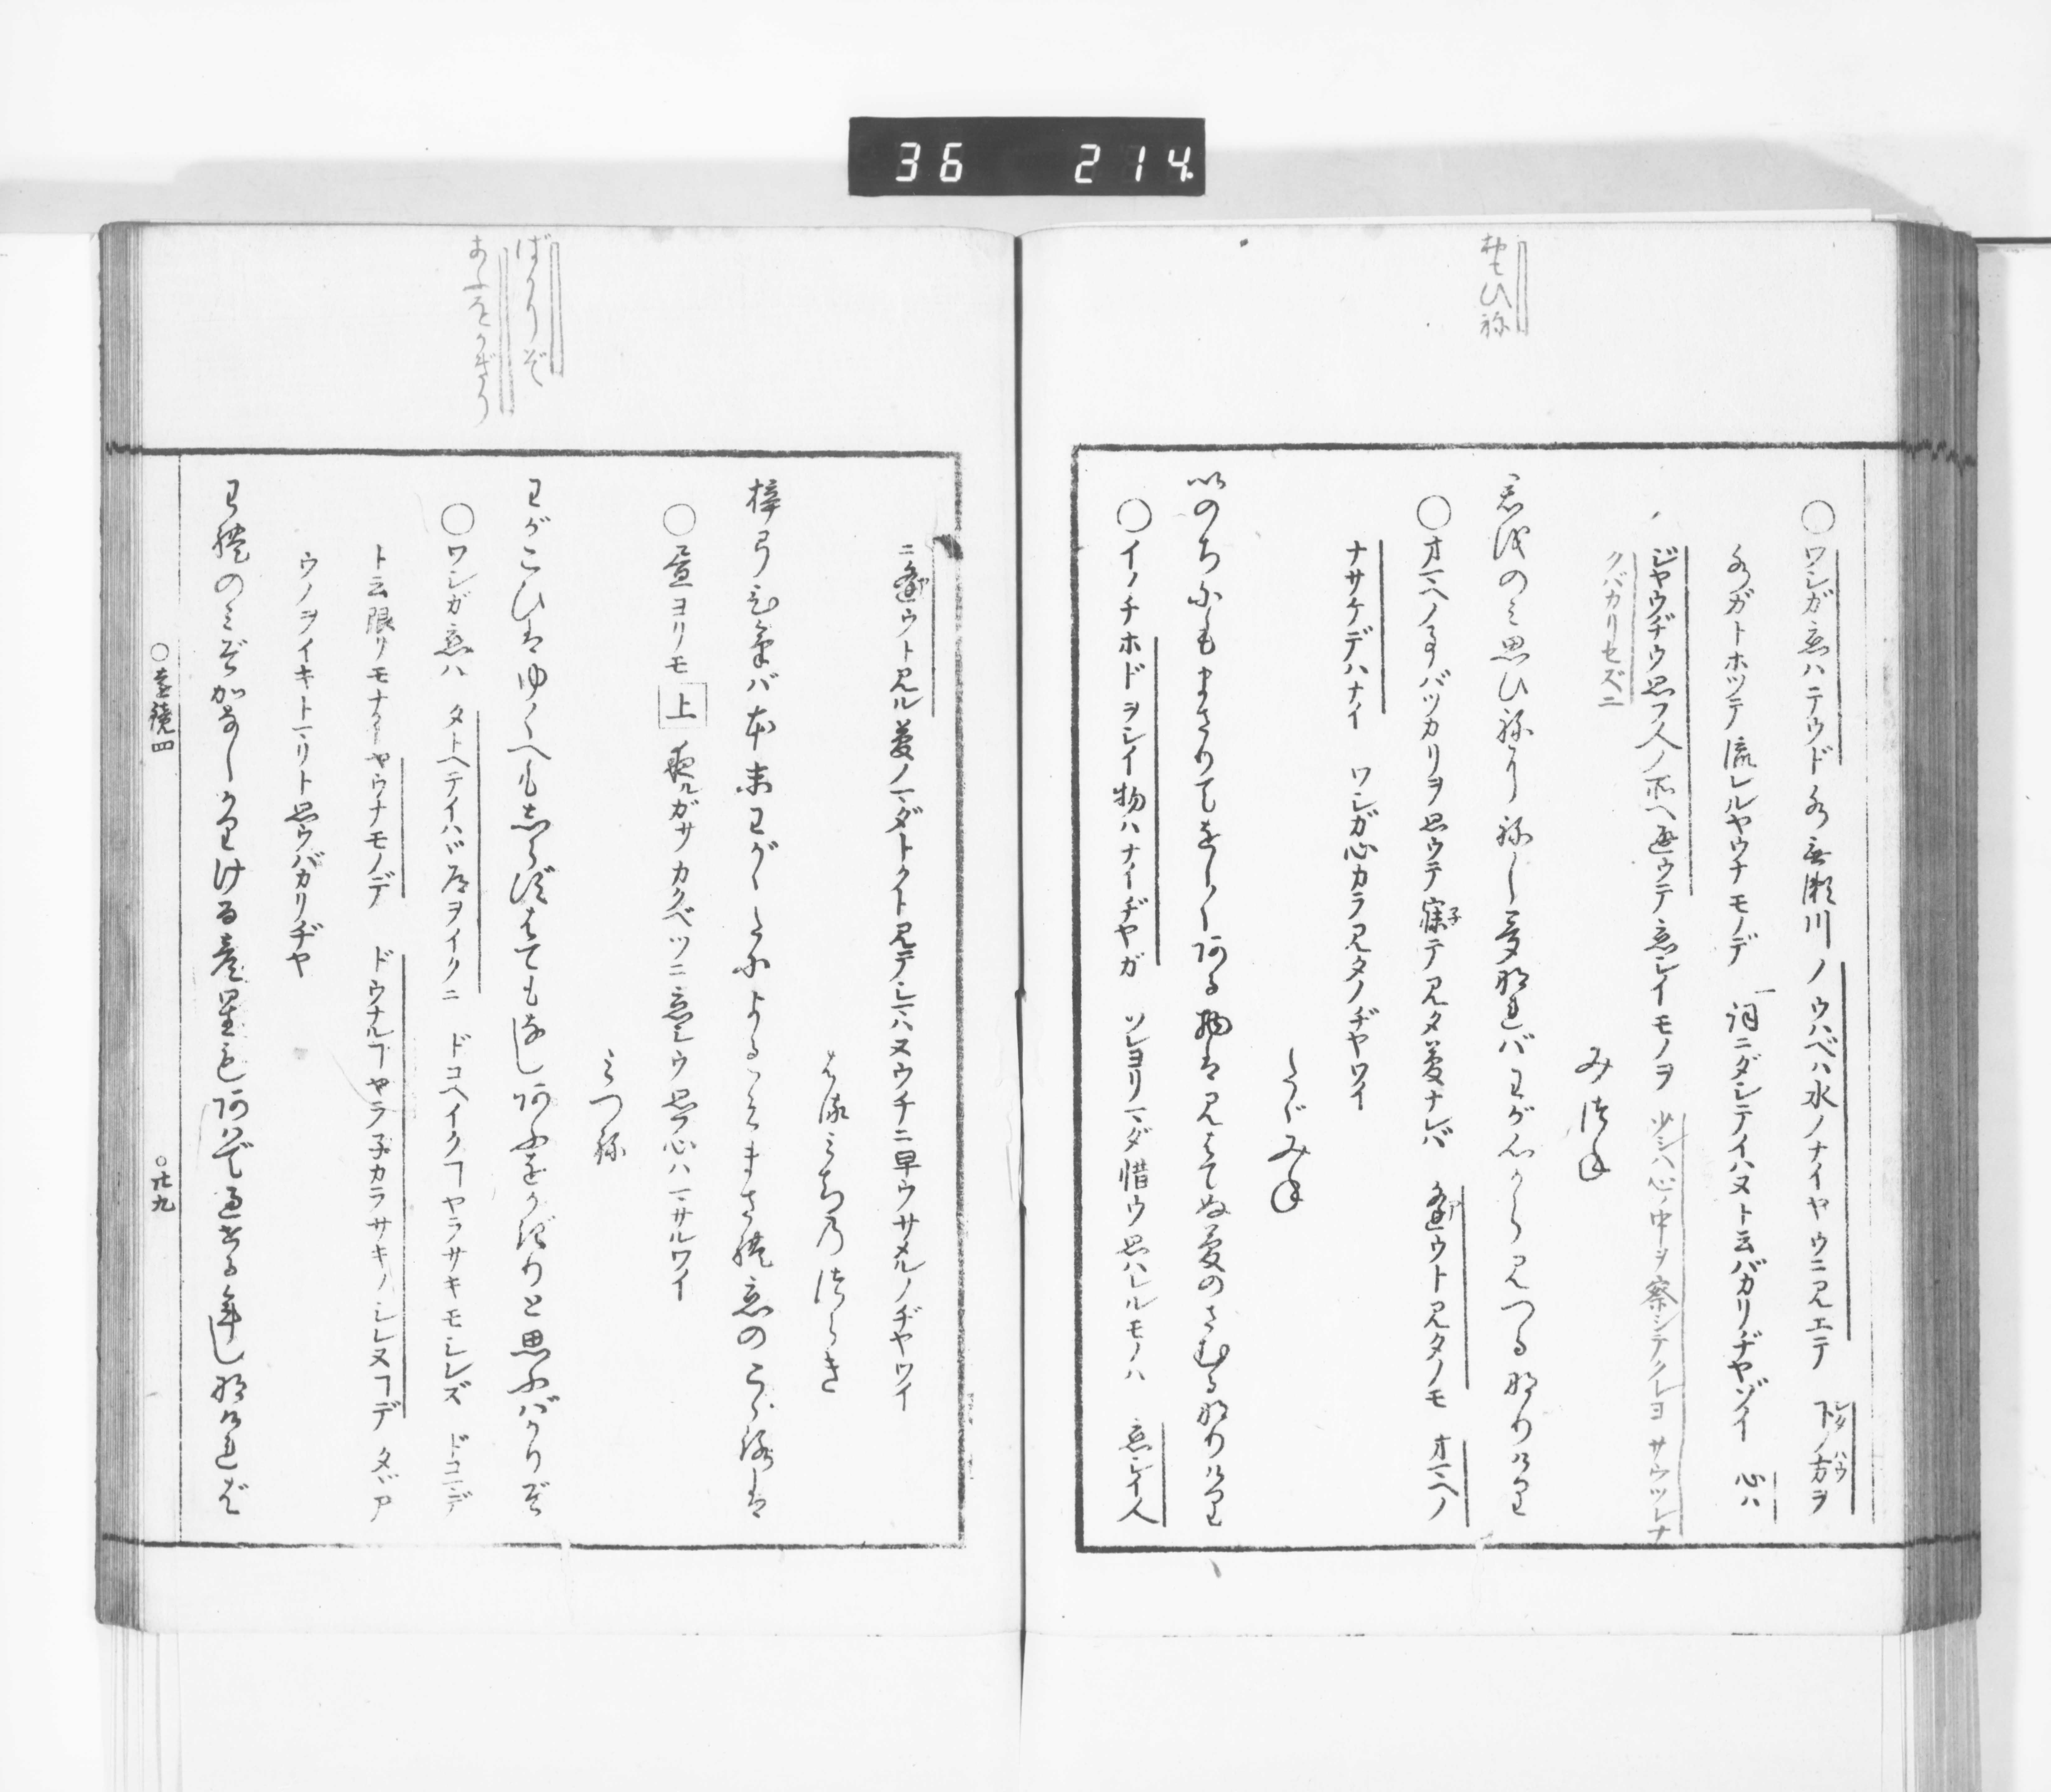 36 214
おもひ祢
○ワシガ恋ハテウド水無瀬川ノウハベハ水ノナイヤウニ見エテ下ノ方ヲ
水ガトホツテ流レルヤウナモノデ 詞ニダシテイハヌト云バカリヂヤゾイ 心ハ
ジヤウヂウ思フ人ノ所ヘ通ウテ恋シイモノヲ 少シハ心ノ中ヲ察シテクレヨ サウツレナ
クバカリセズニ
み津ね
君をのミ思ひ祢り祢し夢なれバわが心から見つるなりけり
○オマヘノ事バツカリヲ思ウテ寐テ見タ夢ナレバ 逢ウト見タノモ オマヘノ
ナサケデハナイ ワシガ心カラ見タノヂヤワイ
たゞみね
いのちにもまさりてをしくある物は見はてぬ夢のさむるなりけり
○イノチホドヲシイ物ハナイヂヤガ ソレヨリマダ惜ウ思ハレルモノハ 恋シイ人
ニ逢ウト見ル夢ノマダトクト見テシマハヌウチニ早ウサメルノヂヤワイ
はるミちのつらき
梓弓ひけバ本末わがかたによるこそまされ恋のこゝろは
○昼ヨリモ上夜ルガサ カクベツニ恋シウ思フ心ハマサルワイ
ミつ祢
ばかりぞ
あふをかぎり
わがこひはゆくへも志らずはてもなしあふをかぎりと思ふバかりぞ
○ワシガ恋ハ タトヘテイハバ道ヲイクニ ドコヘイクヿヤラサキモシレズ ドコマデ
ト云限リモナイヤウナモノデ ドウナルヿヤラ子カラサキノシレヌヿデ タヾア
ウノヲイキトマリト思ウバカリヂヤ
われのミぞかなしかりける彦星もあはで過せる年しなければ
○遠鏡四
○廿九